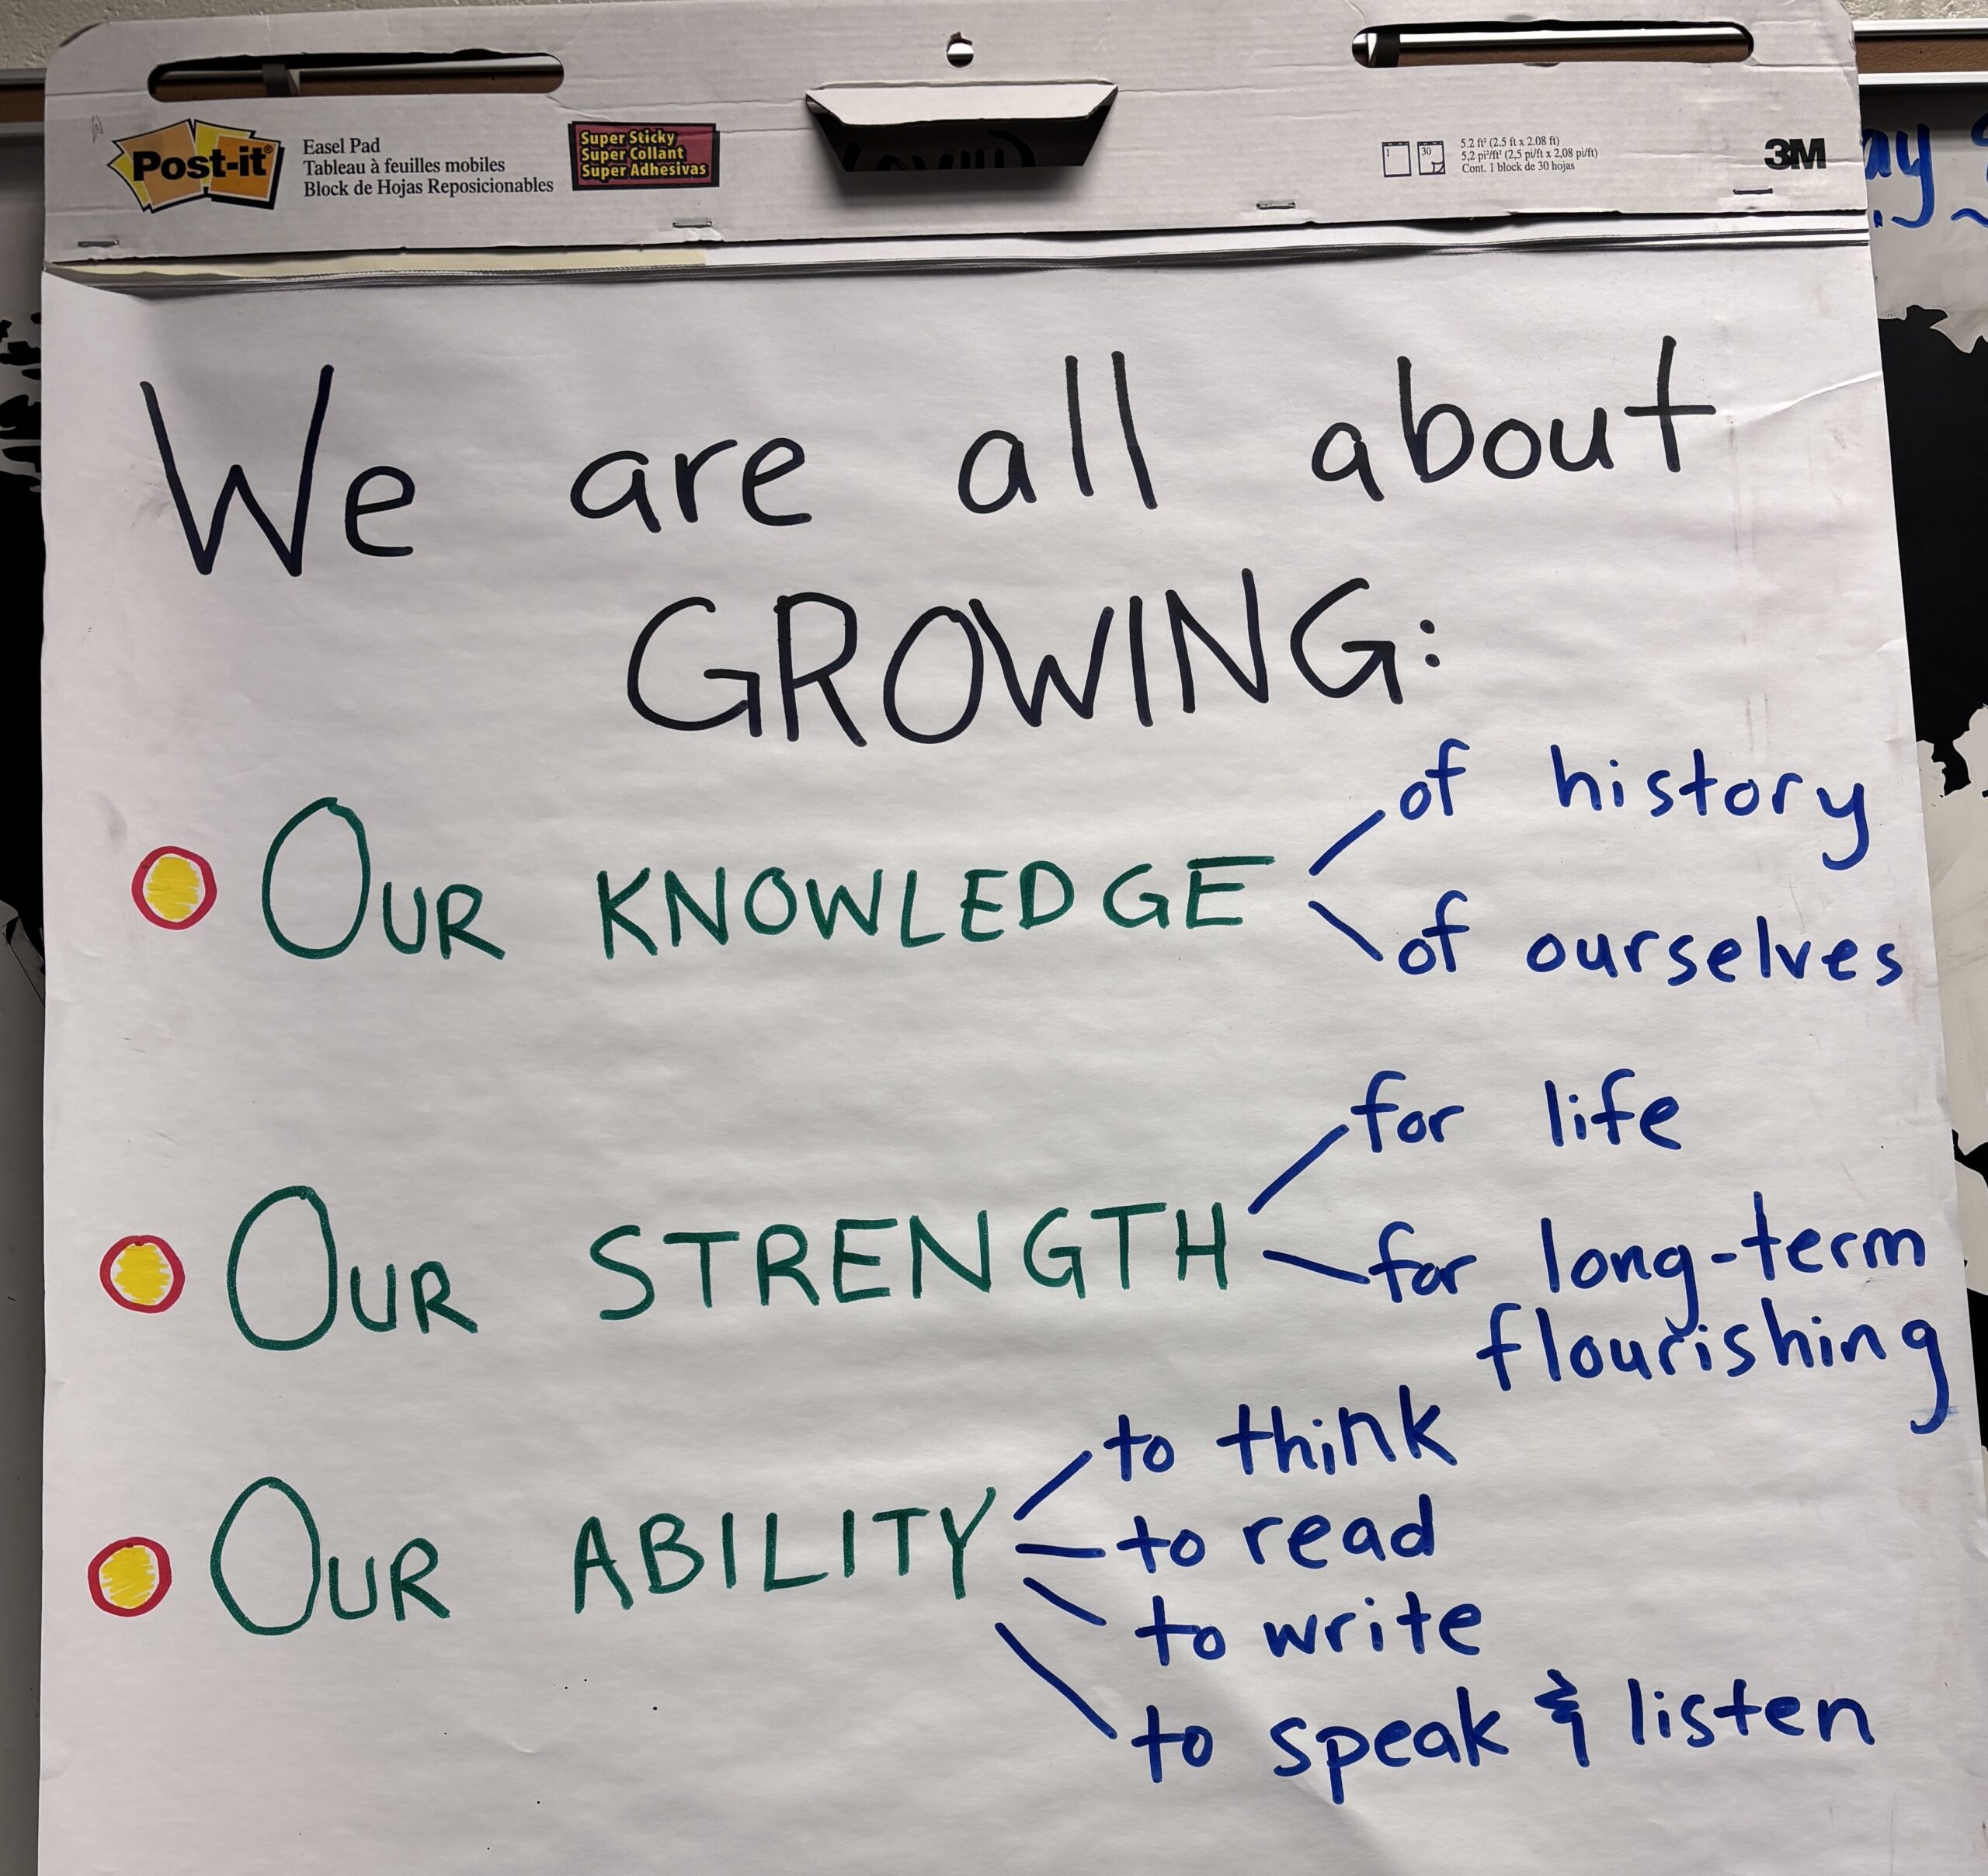 Post-it®
Easel Pad
Tableau à feuilles mobiles
Block de Hojas Reposicionables
Super Sticky
Super Collant
Super Adhesivas
1
30
5.2 ft² (2.5 ft x 2.08 ft)
5,2 pi²/ft² (2,5 pi/ft x 2,08 pi/ft)
Cont. 1 block de 30 hojas
3M
We are all about
GROWING:
OUR KNOWLEDGE
of history
of ourselves
OUR STRENGTH
for life
for long-term
flourishing
OUR ABILITY
to think
to read
to write
to speak & listen